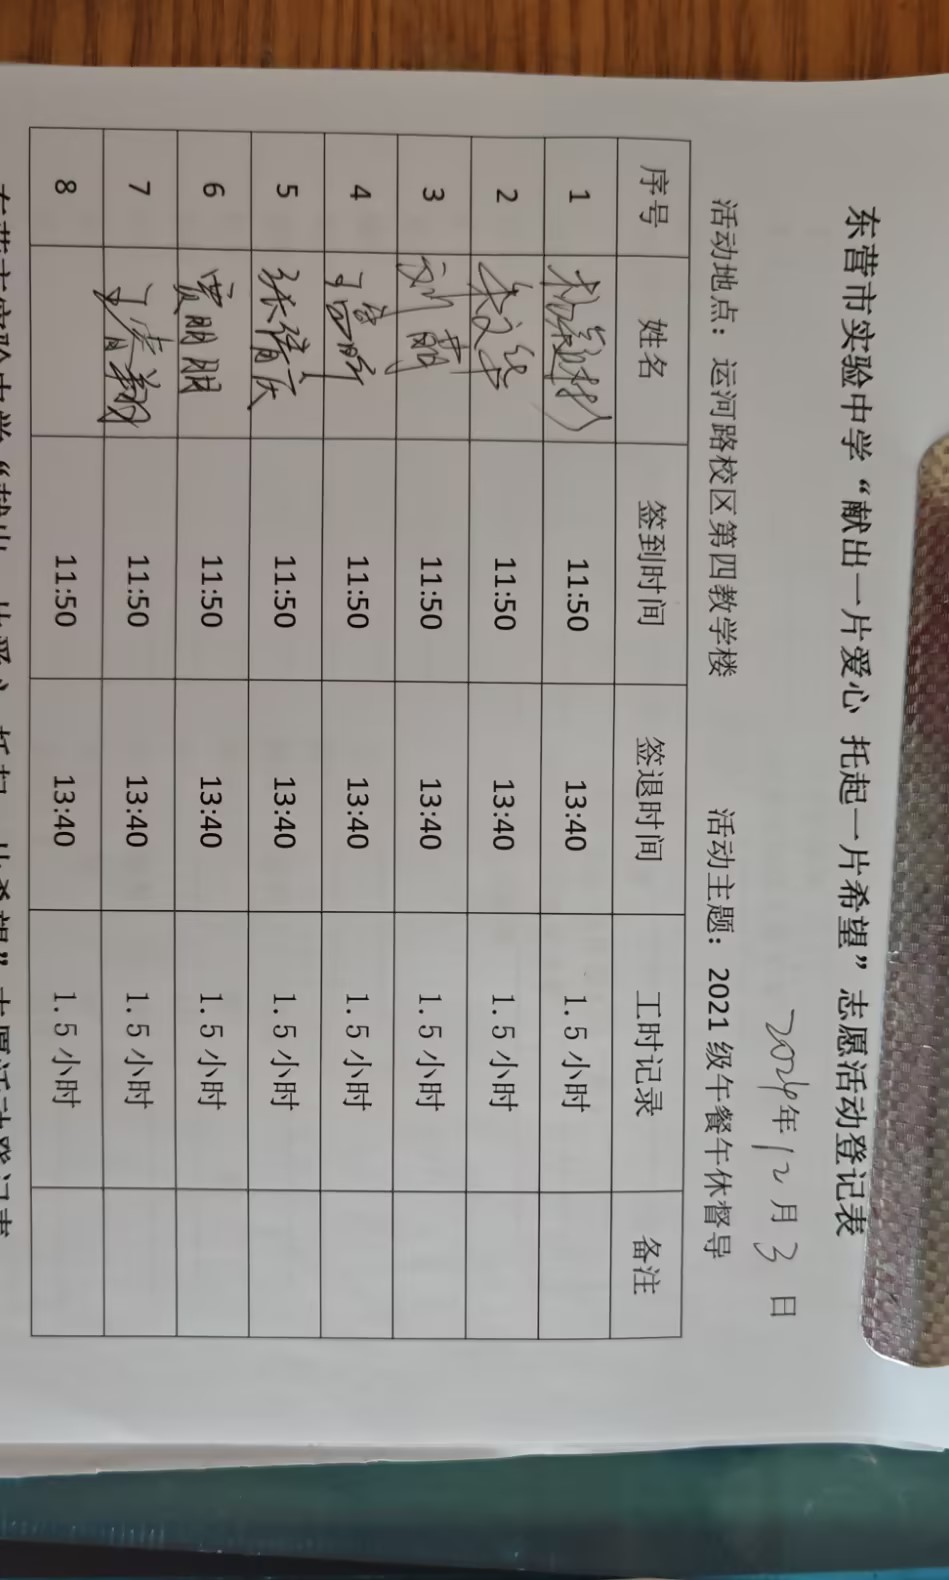 东营市实验中学“献出一片爱心 托起一片希望”志愿活动登记表
2024年12月3日
活动地点：运河路校区第四教学楼 活动主题：2021级午餐午休督导
序号 姓名 签到时间 签退时间 工时记录 备注
1 11:50 13:40 1.5小时
2 11:50 13:40 1.5小时
3 11:50 13:40 1.5小时
4 11:50 13:40 1.5小时
5 11:50 13:40 1.5小时
6 贾朋朋 11:50 13:40 1.5小时
7 11:50 13:40 1.5小时
8 11:50 13:40 1.5小时